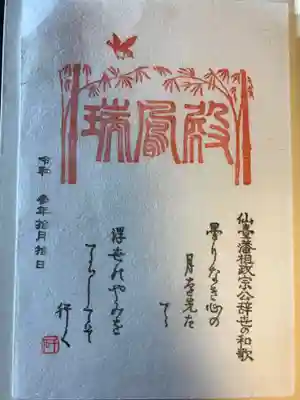 瑞鳳殿
仙臺藩祖政宗公辞世の和歌
曇りなき心の
月を先た
てゝ
浮世のやみを
てらしてそ
行く
令和 参年拾月拾日